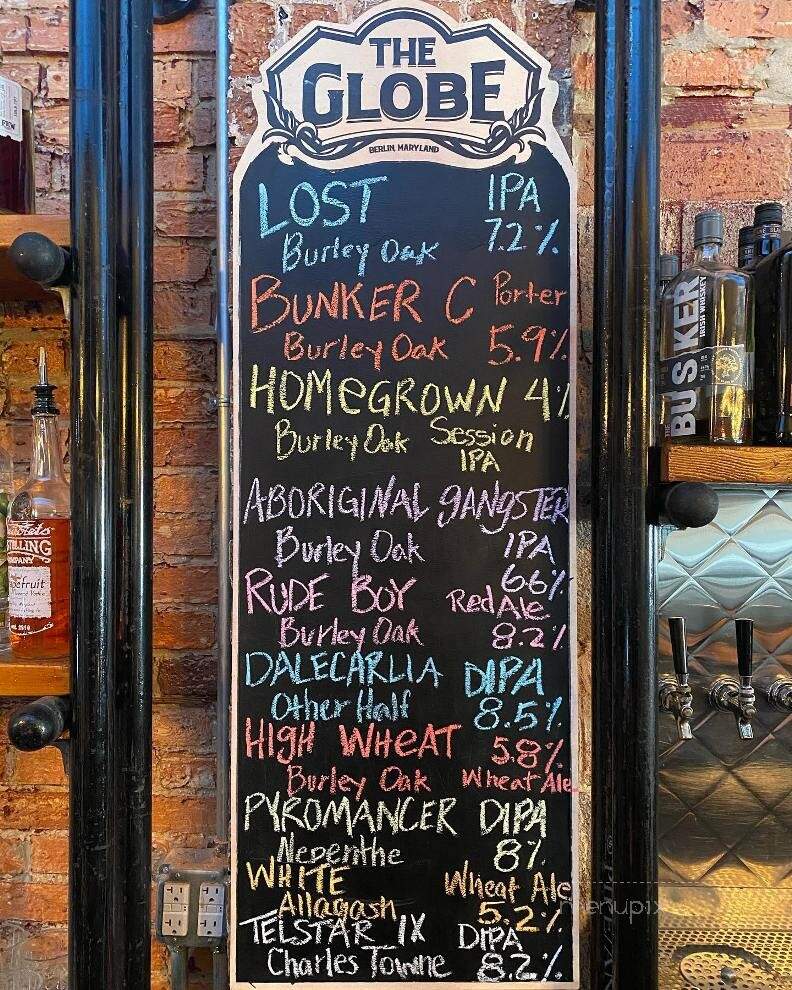 THE
GLOBE
BERLIN, MARYLAND
LOST IPA
Burley Oak 7.2%
BUNKER C Porter
Burley Oak 5.9%
HOMEGROWN 4%
Burley Oak Session
IPA
ABORIGINAL GANGSTER
Burley Oak IPA
66%
RUDE BOY Red Ale
Burley Oak 8.2%
DALECARLIA DIPA
Other Half 8.5%
HIGH WHEAT 5.8%
Burley Oak Wheat Ale
PYROMANCER DIPA
Nepenthe 8%
WHITE Wheat Ale
Allagash 5.2%
TELSTAR IX DIPA
Charles Towne 8.2%
BUSKER
IRISH WHISKEY
menupix